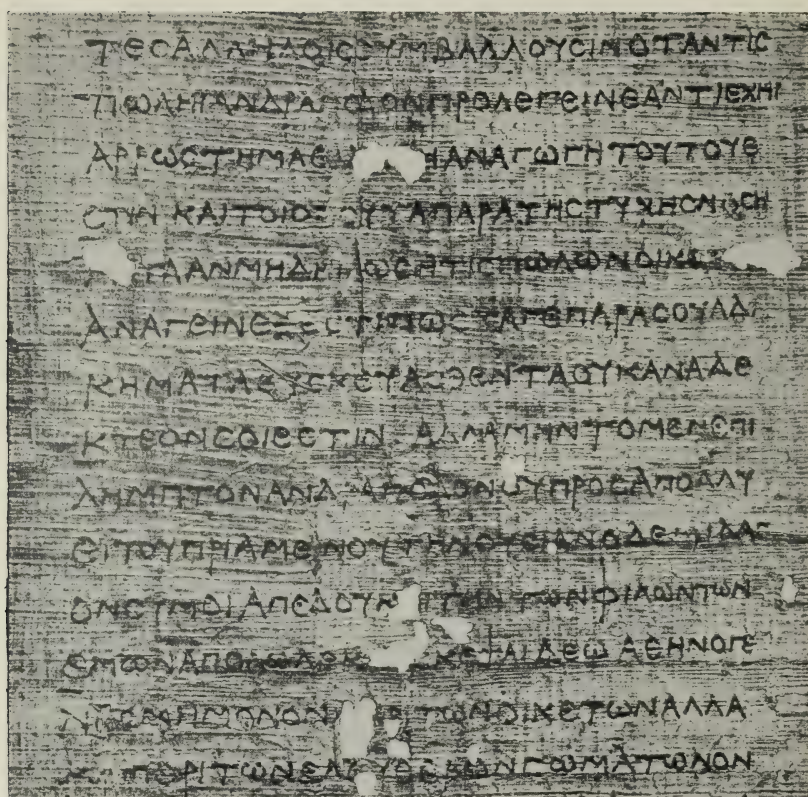 ΤΕСΑΛΛΗΛΟΙССΥΜΒΑΛΛΟΥСΙΝΟΤΑΝΤΙС
ΠΩΛΗΙΑΝΔΡΑΠΟΔΟΝΠΡΟΛΕΓΕΙΝΕΑΝΤΙΕΧΗΙ
ΑΡΡΩСΤΗΜΑΕ ΗΑΝΑΓΩΓΗΤΟΥΤΟΥΕ
СΤΙΝ ΚΑΙΤΟΙΟΠΟΥΤΑΠΑΡΑΤΗСΤΥΧΗСΝΟСΗ
ΤΑΑΝΜΗΔΗΛΩСΗΤΙСΠΩΛΩΝΟΙΚΕ
ΑΝΑΓΕΙΝΕΞΕСΤΙΠΩСΤΑΓΕΠΑΡΑСΟΥΑΔΙ
ΚΗΜΑΤΑСΥСΚΕΥΑСΘΕΝΤΑΟΥΚΑΝΑΔΕ
ΚΤΕΟΝСΟΙΕСΤΙΝ ΑΛΛΑΜΗΝΤΟΜΕΝΕΠΙ
ΛΗΜΠΤΟΝΑΝΔΡΑΠΟΔΟΝΟΥΠΡΟСΑΠΟΛΛΥ
ΕΙΤΟΥΠΡΙΑΜΕΝΟΥΤΗΝΟΥСΙΑΝΟΔΕΜΙΔΑС
ΟΝСΥΜΟΙΑΠΕΔΟΥΚ ΤΗΝΤΩΝΦΙΛΩΝΤΩΝ
ΕΜΩΝΑΠΟΛΩΛΕΚ ΚΕΨΑΙΔΕΩΑΘΗΝΟΓΕ
ΝΕСΜΗΜΟΝΟΝ ΤΩΝΟΙΚΕΤΩΝΑΛΛΑ
Κ ΠΕΡΙΤΩΝΕΛΕΥΘΕΡΩΝСΩΜΑΤΩΝΟΝ